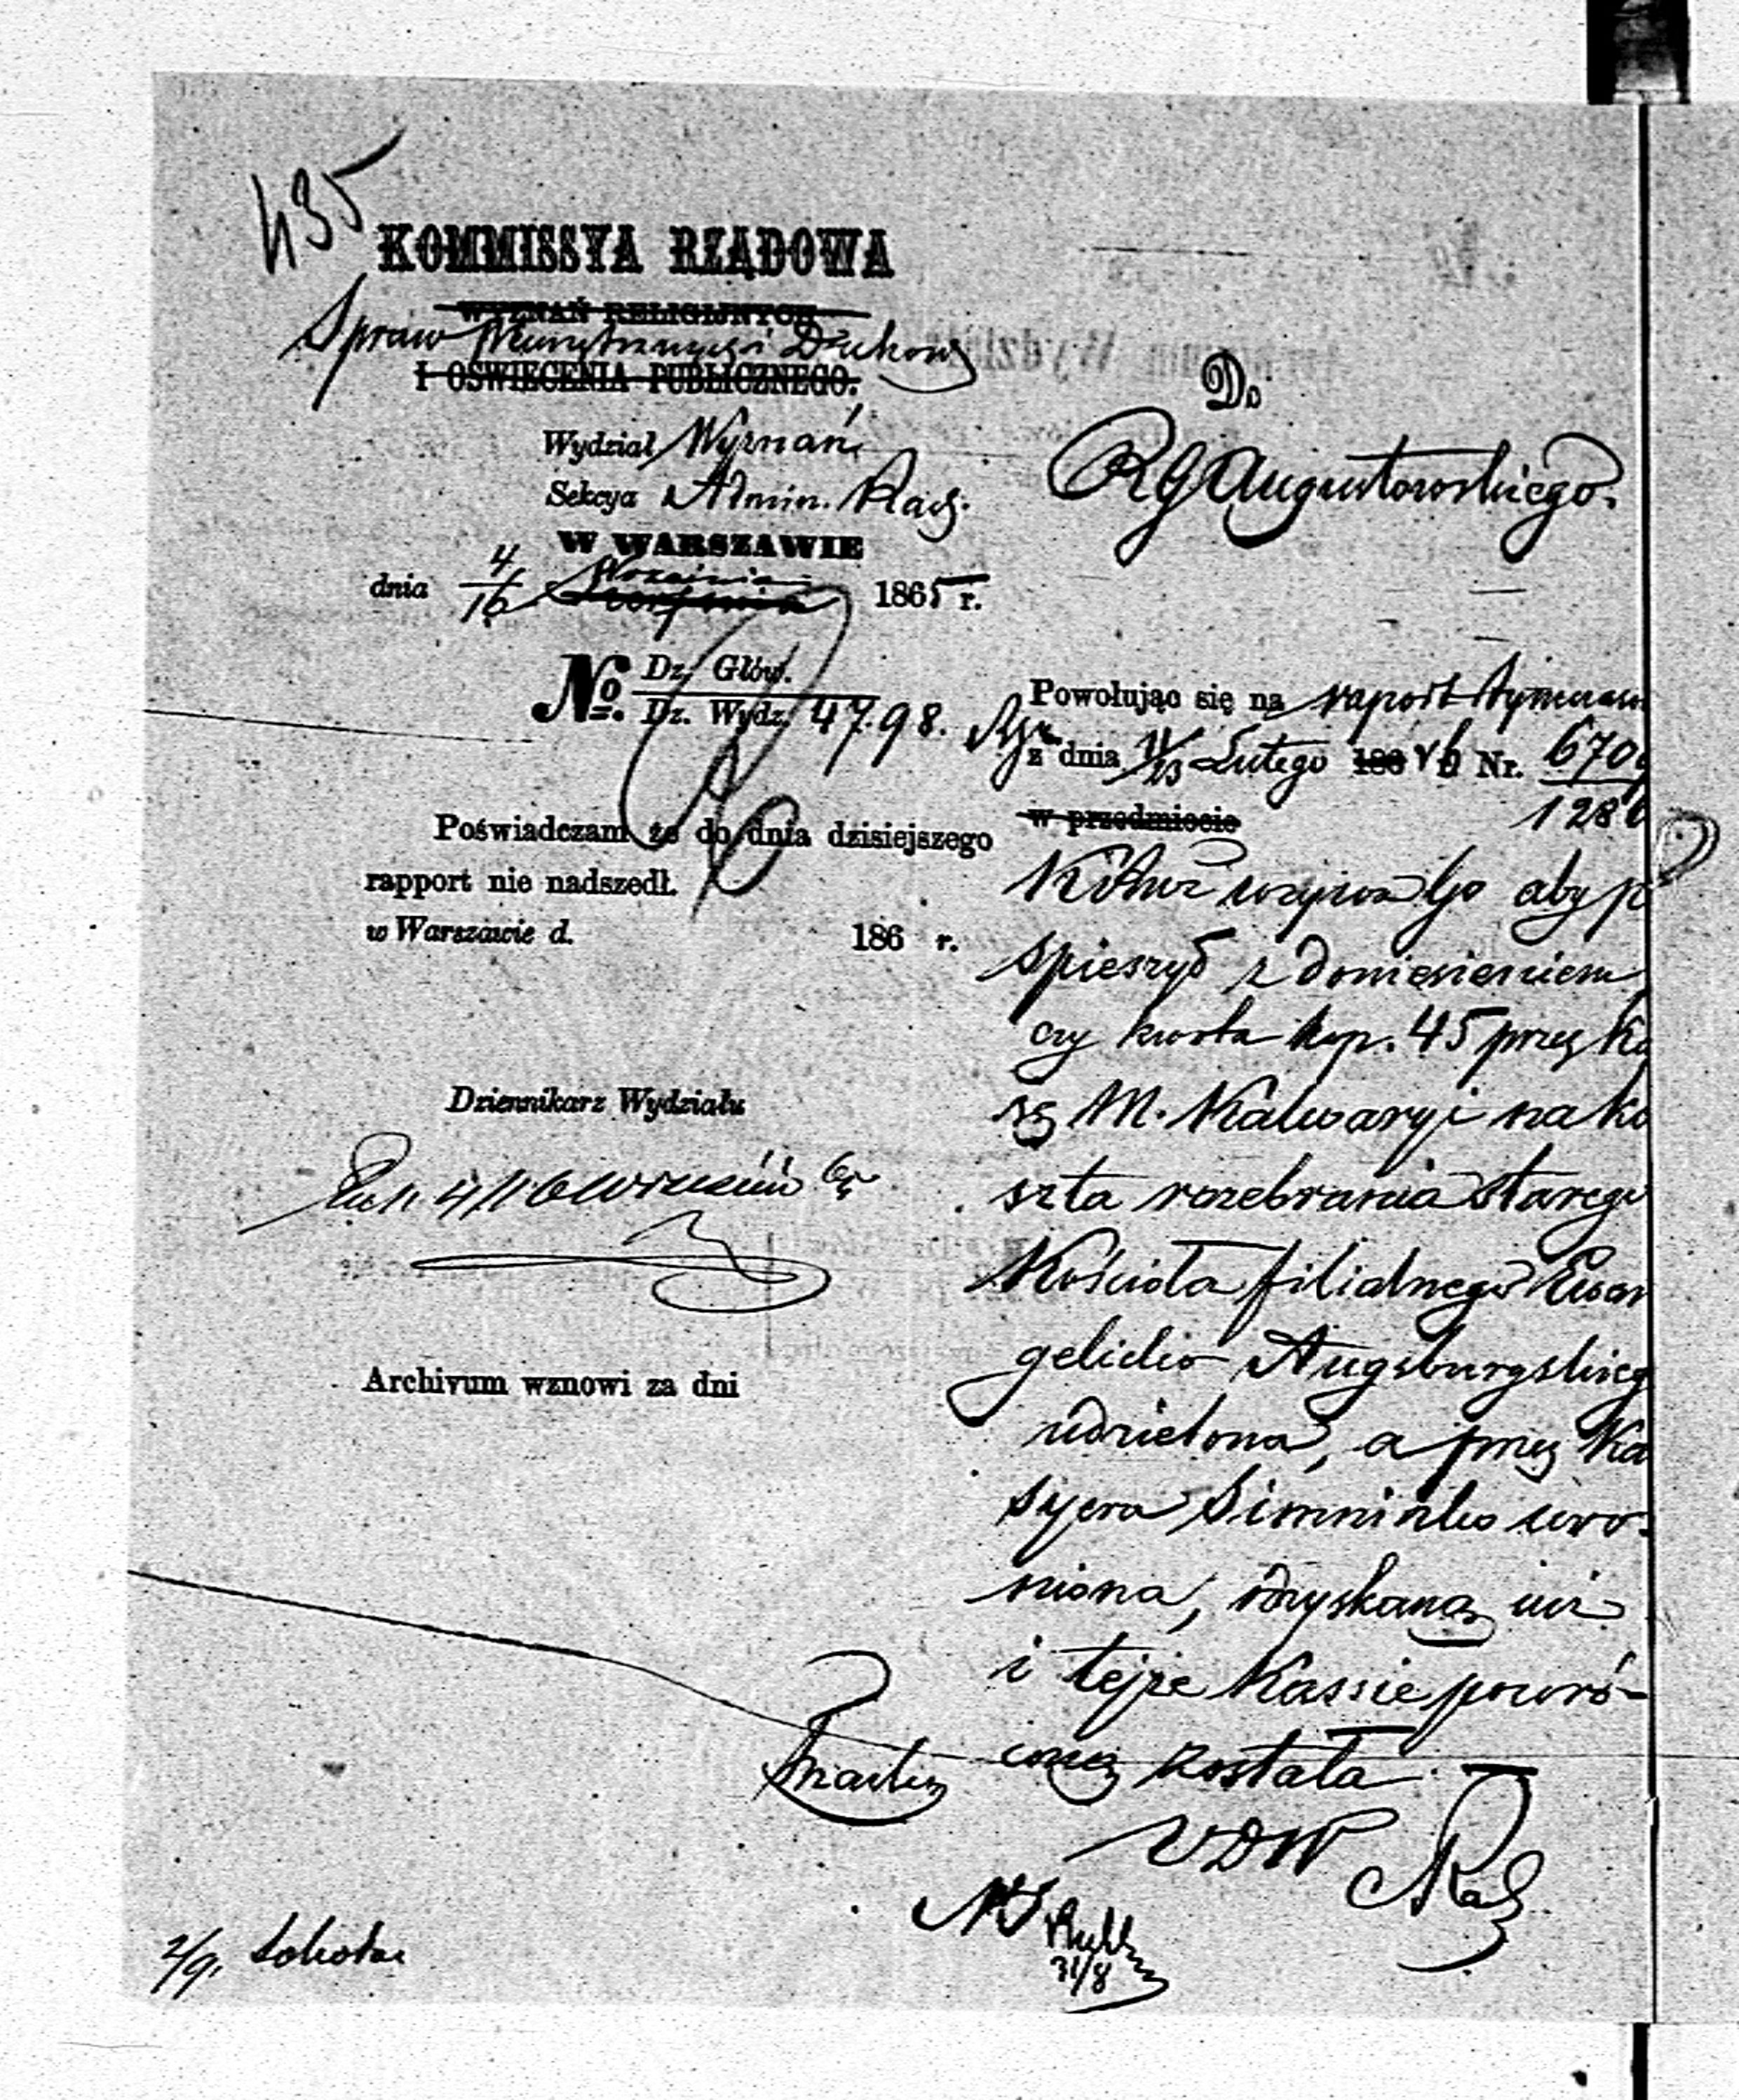 435
KOMMISSYA RZĄDOWA
WYZNAŃ RELIGIJNYCH
Spraw Wewnętrznych i Duchown
I OŚWIECENIA PUBLICZNEGO.
Wydział Wyznań
Sekcya Admin. Rach.
W WARSZAWIE
dnia 4/16 Września 1865 r.
No. Dz. Głów.
Dz. Wydz. 4798.
Poświadczam że do dnia dzisiejszego
rapport nie nadszedł.
w Warszawie d. 186 r.
Dziennikarz Wydziału
Archivum wznowi za dni
Do
RG Augustowskiego.
Powołując się na raport
z dnia 11/23 Lutego 186 Nr. 670
128
w przedmiocie
wzywa Go aby p
spieszył z doniesieniem
czy kwota kop. 45 przez Ka
sę M. Kalwaryi na ko
szta rozebrania starego
Kościoła filialnego Ewan
gelicko Augsburgskieg
udzielona, a przez Ka
syera Simnińko uro-
niona, odzyskaną już
i tejże Kassie powró-
coną została
VDW
31/8
2/9.